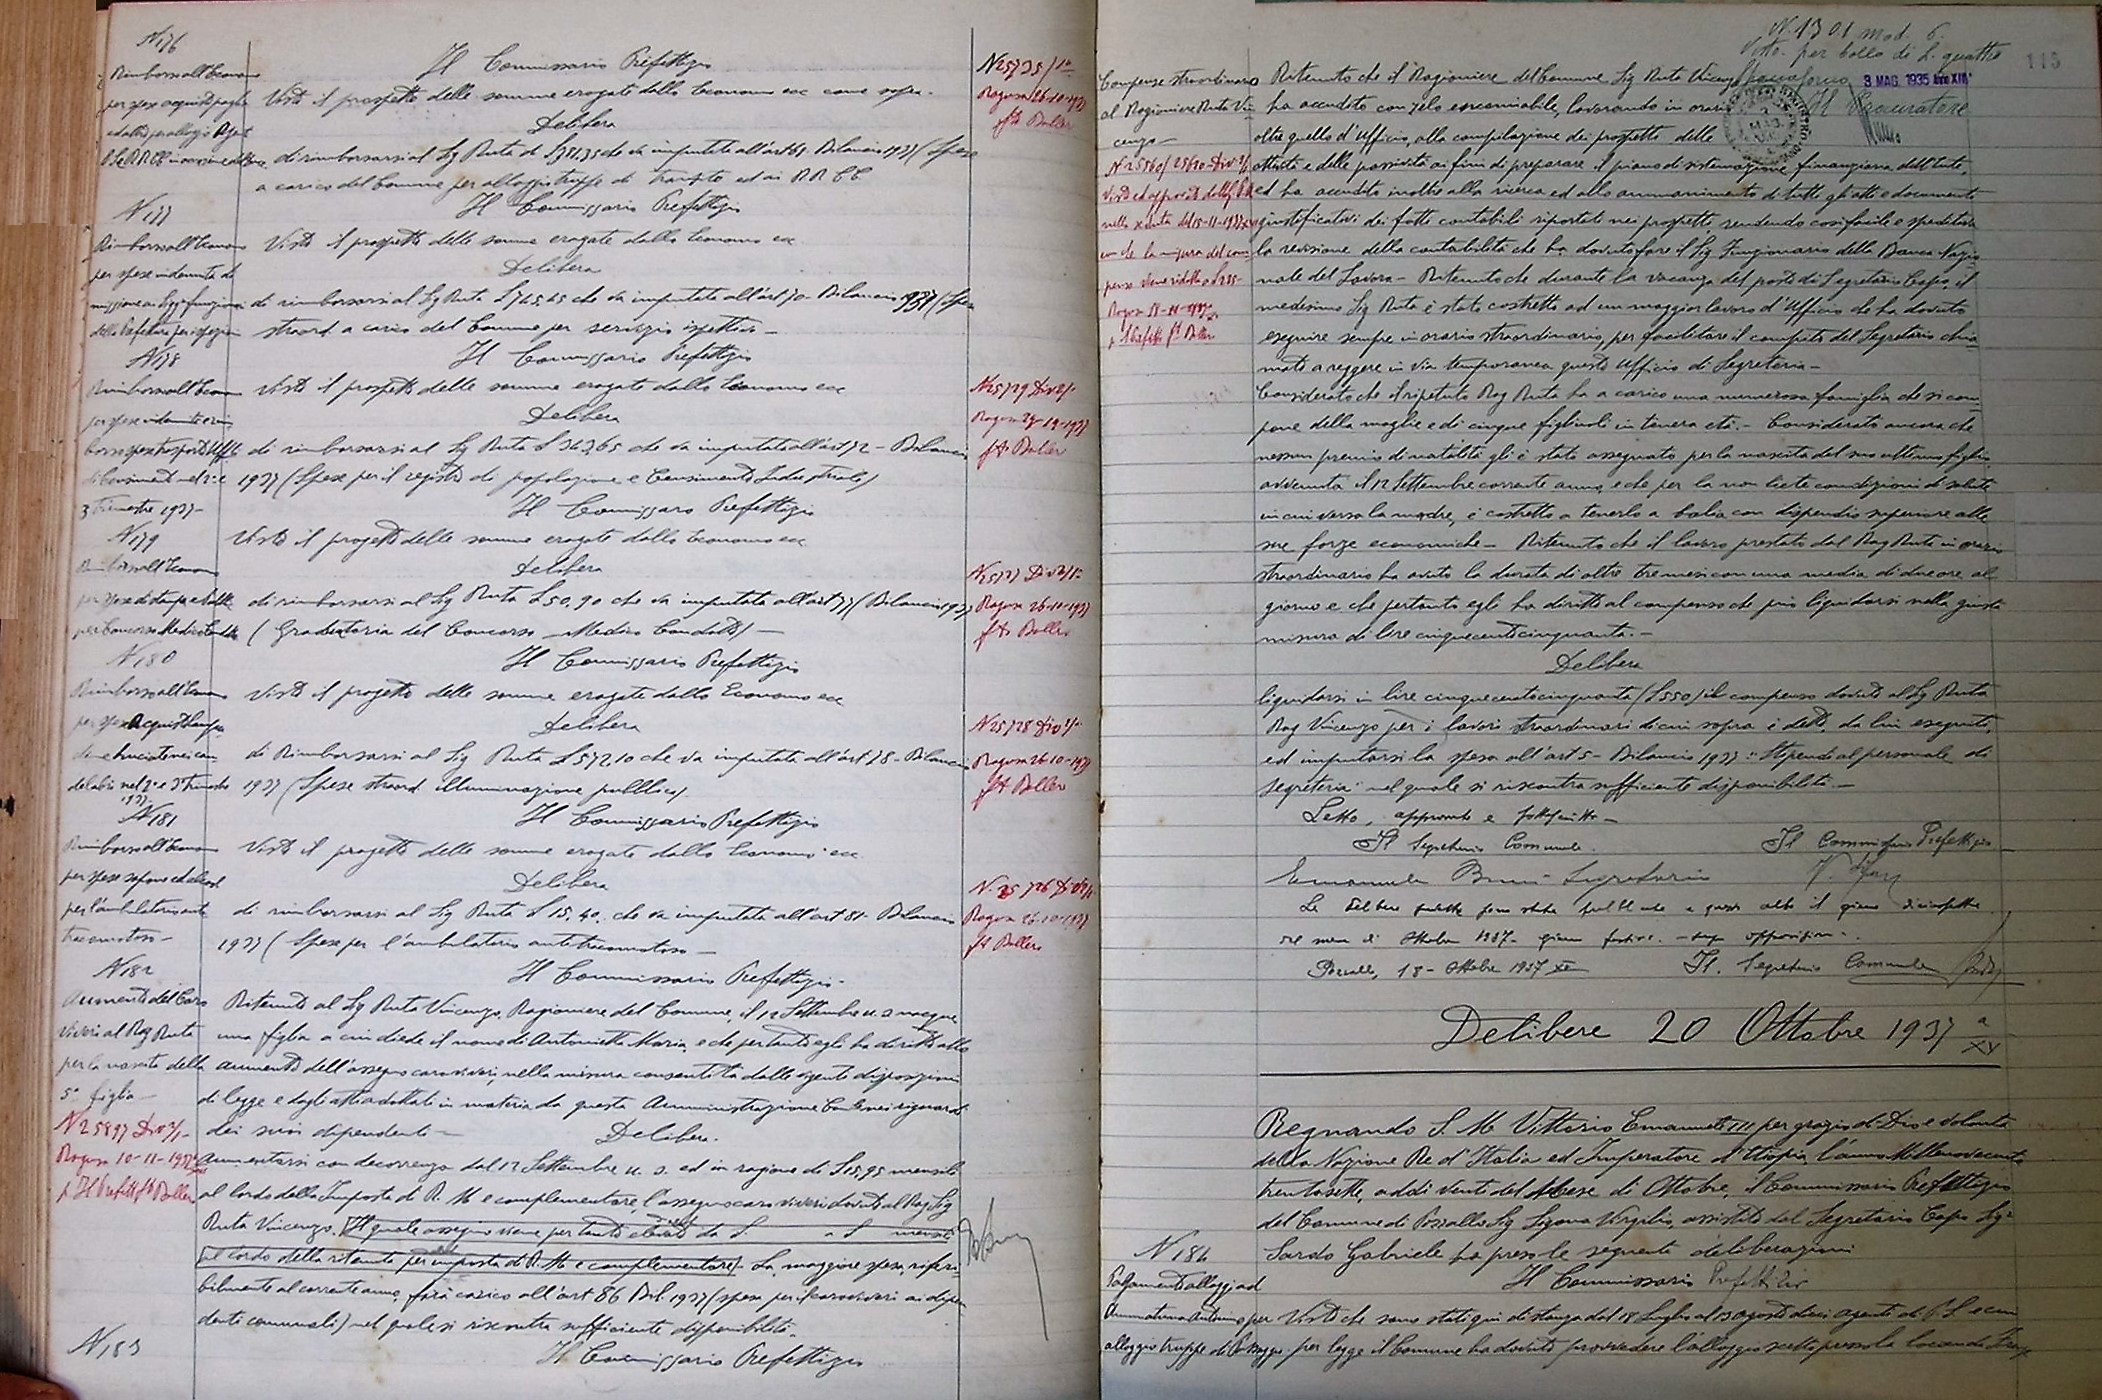 N 176
Rimborso all'Economo
per spese acquisto paglia
ed altro per alloggio Agenti
Il Commissario Prefettizio
Visto il prospetto delle somme erogate dallo Economo ecc come sopra.
Delibera
di rimborsarsi al Sig Ruta di da imputate all'art Bilancio 1937 (Spese
a carico del Comune per alloggi truppe di transito ed ai RR CC
N 25725/1a
Ragusa 26-10-1937
N 177
Rimborso all'Economo
per spese indennità di
missione ai Sigg funzionari
della Prefettura per ispezioni
Il Commissario Prefettizio
Visto il prospetto delle somme erogate dallo Economo ecc
Delibera
di rimborsarsi al Sig Ruta £ 765,65 che va imputata all'art 70 - Bilancio 1937 (Spese
straord. a carico del Comune per servizio ispettivo -
N 178
Rimborso all'Econ
3° Trimestre 1937-
Il Commissario Prefettizio
Visto il prospetto delle somme erogate dallo Economo ecc
Delibera
di rimborsarsi al Sig Ruta £ 363,65 che va imputata all'art 72 - Bilancio
1937 (Spese per il registro di popolazione e Censimento Industriale)
N 25729 Div 2/1-
Ragusa 1937
N 179
Rimborso all'Economo
per spese di stampa
per Concorso Medico Condotto
Il Commissario Prefettizio
Visto il progetto delle somme erogate dallo Economo ecc
Delibera
di rimborsarsi al Sig Ruta £ 50,90 che va imputata all'art 77 (Bilancio 1937
(Graduatoria del Concorso - Medico Condotto) -
N 25727 Div 2/1-
Ragusa 26-10-1937
N 180
Rimborso all'Economo
per spese acquisto lampa
dine bruciatesi
nel 2° e 3° Trimestre
1937-
Il Commissario Prefettizio
Visto il progetto delle somme erogate dallo Economo ecc
Delibera
di Rimborsarsi al Sig Ruta £ 572.10 che va imputata all'art 78 - Bilancio
1937 (Spese straord illuminazione pubblica)
N 25728 Div 2/1-
Ragusa 26-10-1937
N 181
Rimborso all'Economo
per spese sapone ed alcool
per l'ambulatorio anti
tracomatoso -
Il Commissario Prefettizio
Visto il progetto delle somme erogate dallo Economo ecc
Delibera
di rimborsarsi al Sig Ruta £ 15,40 che va imputata all'art 81 - Bilancio
1937 (Spese per l'ambulatorio antitracomatoso -
N. 25726 Div 2/1-
Ragusa 26-10-1937
N 182
Aumento del Caro
Viveri al Rag Ruta
per la nascita della
5a figlia -
N 25897 Div 2/1-
Ragusa 10-11-1937
Il Commissario Prefettizio -
Ritenuto al Sig Ruta Vincenzo, Ragioniere del Comune, il 12 Settembre u. s. nacque
una figlia a cui diede il nome di Antonietta Maria, e che pertanto egli ha diritto allo
aumento dell'assegno caroviveri, nella misura consentita dalle vigenti disposizioni
di legge e dagli atti adottati in materia da questa Amministrazione Com.le nei riguardi
dei suoi dipendenti - Delibera.
Aumentarsi con decorrenza dal 12 Settembre u. s. ed in ragione di £ 15,75 mensili
al lordo della Imposta di R. M e complementare, l'assegno caroviveri dovuto al Rag Sig
Ruta Vincenzo. Il quale assegno viene pertanto elevato da £. a £ mensili
al lordo della ritenuta per imposta di R. M e complementare). La maggiore spesa, riferi-
bilmente al corrente anno, farà carico all'art 86 Bil. 1937 (spese per il caroviveri ai dipen
denti comunali) nel quale si riscontra sufficiente disponibilità -
N 183
Il Commissario Prefettizio
N. 1301 mod. 6.
Visto per bollo di L. quattro
113
3 MAG. 1935 Anno XIII
Il Procuratore
Compenso straordinario
al Ragioniere Ruta Vin-
cenzo -
N 25560/25690 Div 2/1
Visto ed approvato dalla G P A
nella seduta del 15-11-1937 XVI
con che la misura del com
penso viene ridotta a £
Ragusa 18-11-1937
p Il Prefetto
Ritenuto che il Ragioniere del Comune Sig Ruta Vincenzo
ha accudito con zelo encomiabile, lavorando in orari
oltre quello d'ufficio, alla compilazione dei prospetti delle
attività e delle passività ai fini di preparare il piano di sistemazione finanziaria dell'Ente,
ed ha accudito inoltre alla ricerca ed allo ammannimento di tutti gli atti e documenti
giustificativi dei fatti contabili riportati nei prospetti, rendendo così facile e spedita
la revisione della contabilità che ha dovuto fare il Sig. Funzionario della Banca Nazio-
nale del Lavoro - Ritenuto che durante la vacanza del posto di Segretario Capo, il
medesimo Sig Ruta è stato costretto ad un maggior lavoro d'Ufficio che ha dovuto
eseguire sempre in orario straordinario, per facilitare il compito del Segretario chia-
mato a reggere in via temporanea questo Ufficio di Segreteria -
Considerato che il ripetuto Rag Ruta ha a carico una numerosa famiglia che si com-
pone della moglie e di cinque figliuoli in tenera età. - Considerato ancora che
nessun premio di natalità gli è stato assegnato per la nascita del suo ultimo figlio,
avvenuta il 12 Settembre corrente anno, e che per la non liete condizioni di salute
in cui versa la madre, è costretto a tenerlo a balia con dispendio superiore alle
sue forze economiche - Ritenuto che il lavoro prestato dal Rag Ruta in orario
straordinario ha avuto la durata di oltre tre mesi con una media di due ore al
giorno e che pertanto egli ha diritto al compenso che può liquidarsi nella giusta
misura di lire cinquecentocinquanta. -
Delibera
liquidarsi in lire cinquecentocinquanta (£ 550) il compenso dovuto al Sig Ruta
Rag Vincenzo per i lavori straordinari di cui sopra è detto, da lui eseguiti,
ed imputarsi la spesa all'art 5 - Bilancio 1937 "Stipendi al personale di
segreteria" nel quale si riscontra sufficiente disponibilità -
Letto, approvato e sottoscritto -
Il Segretario Comunale. Il Commissario Prefettizio
Emanuele Segretario
Le delibere predette sono state pubblicate a questo albo il giorno diciassette
del mese di Ottobre 1937 - giorno festivo - senza opposizioni -.
Pozzallo, 18 - Ottobre 1937 XV Il Segretario Comunale
Delibere 20 Ottobre 1937 a XV
Regnando S. M Vittorio Emanuele III per grazia di Dio e volontà
della Nazione Re d'Italia ed Imperatore d'Etiopia, l'anno Millenovecento
trentasette, addì venti del Mese di Ottobre, il Commissario Prefettizio
del Comune di Pozzallo Sig Sigona Virgilio, assistito dal Segretario Capo Sig-
Sardo Gabriele ha preso le seguenti deliberazioni
N 184
Pagamento alloggi ad
Ammatuna Antonino per
alloggio truppe di Passaggio
Il Commissario Prefettizio
Visto che sono stati qui di stanza dal 18 Luglio al 13 agosto dieci agenti di P. S. e cui
per legge il Comune ha dovuto provvedere l'alloggio scelto presso la locanda